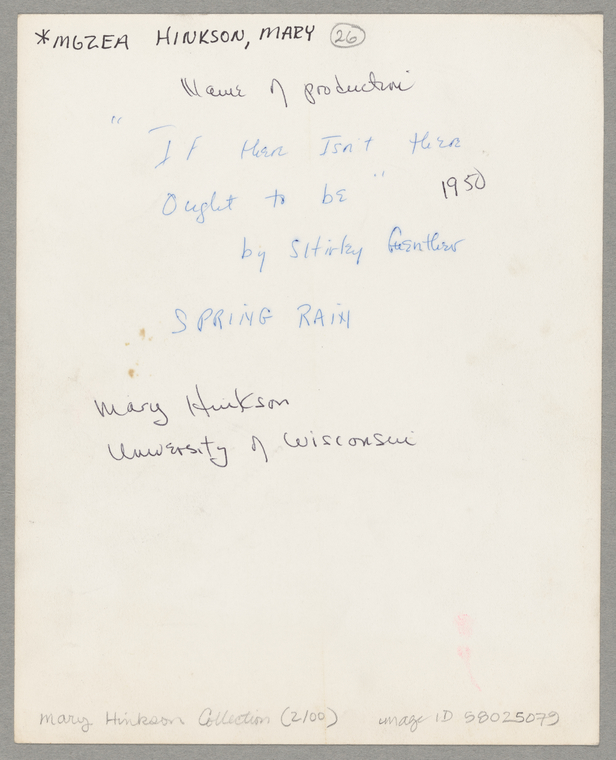 *MGZEA HINKSON, MARY (26)
Name of production
"If there Isn't there
Ought to be" 1950
by Shirley Genther
SPRING RAIN
Mary Hinkson
University of Wisconsin
Mary Hinkson Collection (2/00) image ID 58025079